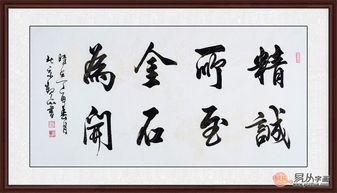 精誠
所至
金石
為開
時在丁酉春月
易从字画